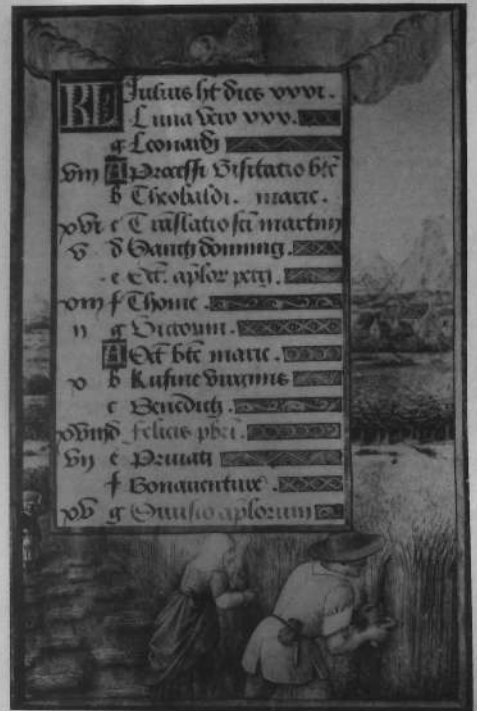 KL Julius ht dies xxxi.
Luna vero xxx.
g Leonardi
viii A Processi Visitatio bte
b Theobaldi. marie.
xvi c Traslatio sci martini
v d Sancti
e Oct. aplor petri.
xiii f Thome.
ii g
A Oct bte marie.
x b Rufine virginis
c Benedicti.
xviii d felicis pbri.
vii e Privati
f Bonaventure.
xv g Divisio aplorum